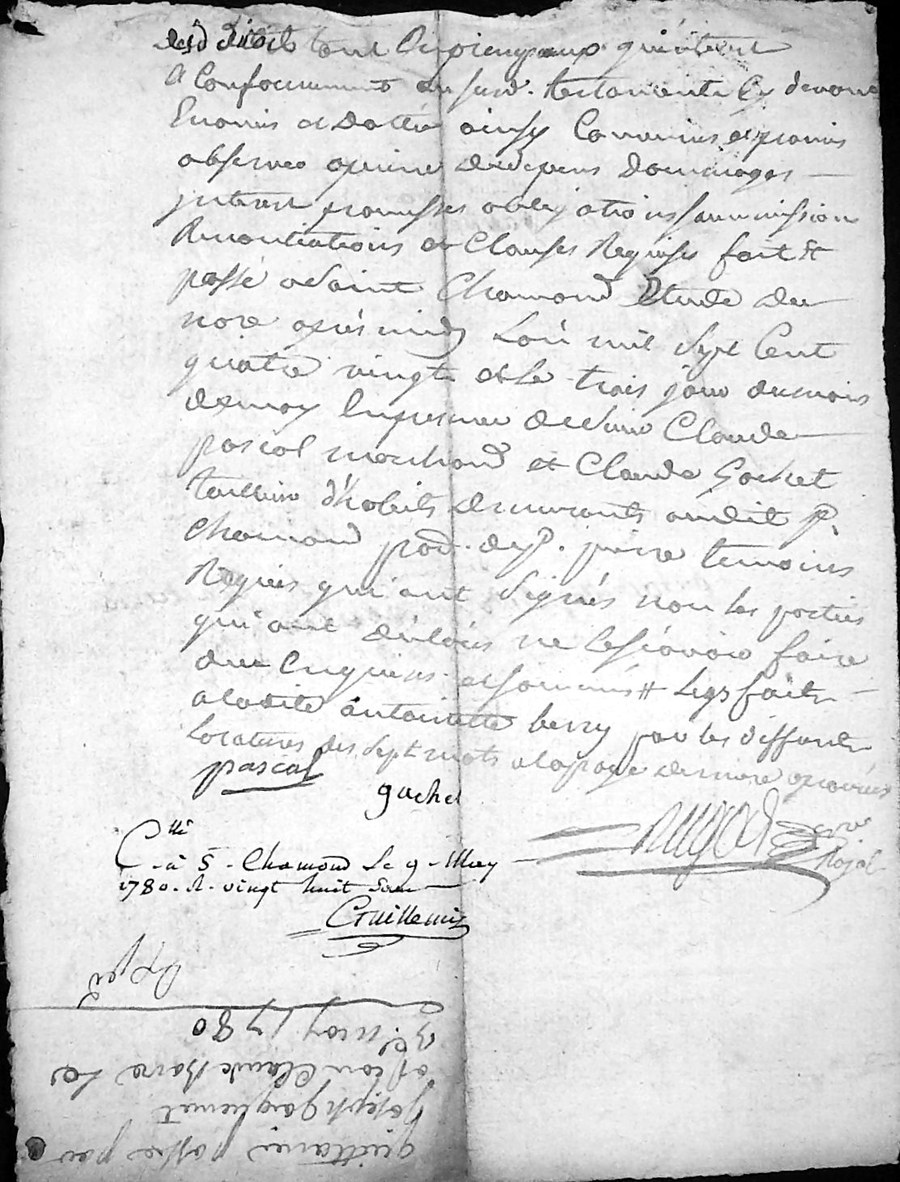 desd droits tant en principaux qu'interet
& Conformement au susd. testament Cy devant
Enoncé et Datté ainsy Convenu et promis
observer apeine de depens Dommages
jnterest promesses obligations soummission
Renontiations et Clauses Requises fait &
passé a Saint Chamond Etude du
nore après midy L'an mil Sept Cent
quatre vingts et Le trois jour du mois
de may En presence de sieur Claude
pascal marchand et Claude Gachet
tailleur d'habits demeurants audit St.
Chamond temoins
Requis qui ont Signés non les parties
qui ont déclarés ne le sçavoir faire
de ce Enquises et sommés # Legs fait
a ladite antoinette berry par les deffunts
Locatures des sept mots a la page
pascal
gachet
Royal
Cllé
à S. Chamond Le 9. May
1780. R. vingt huit sous
quittance passé par
joseph
Claude
3e. may 1780